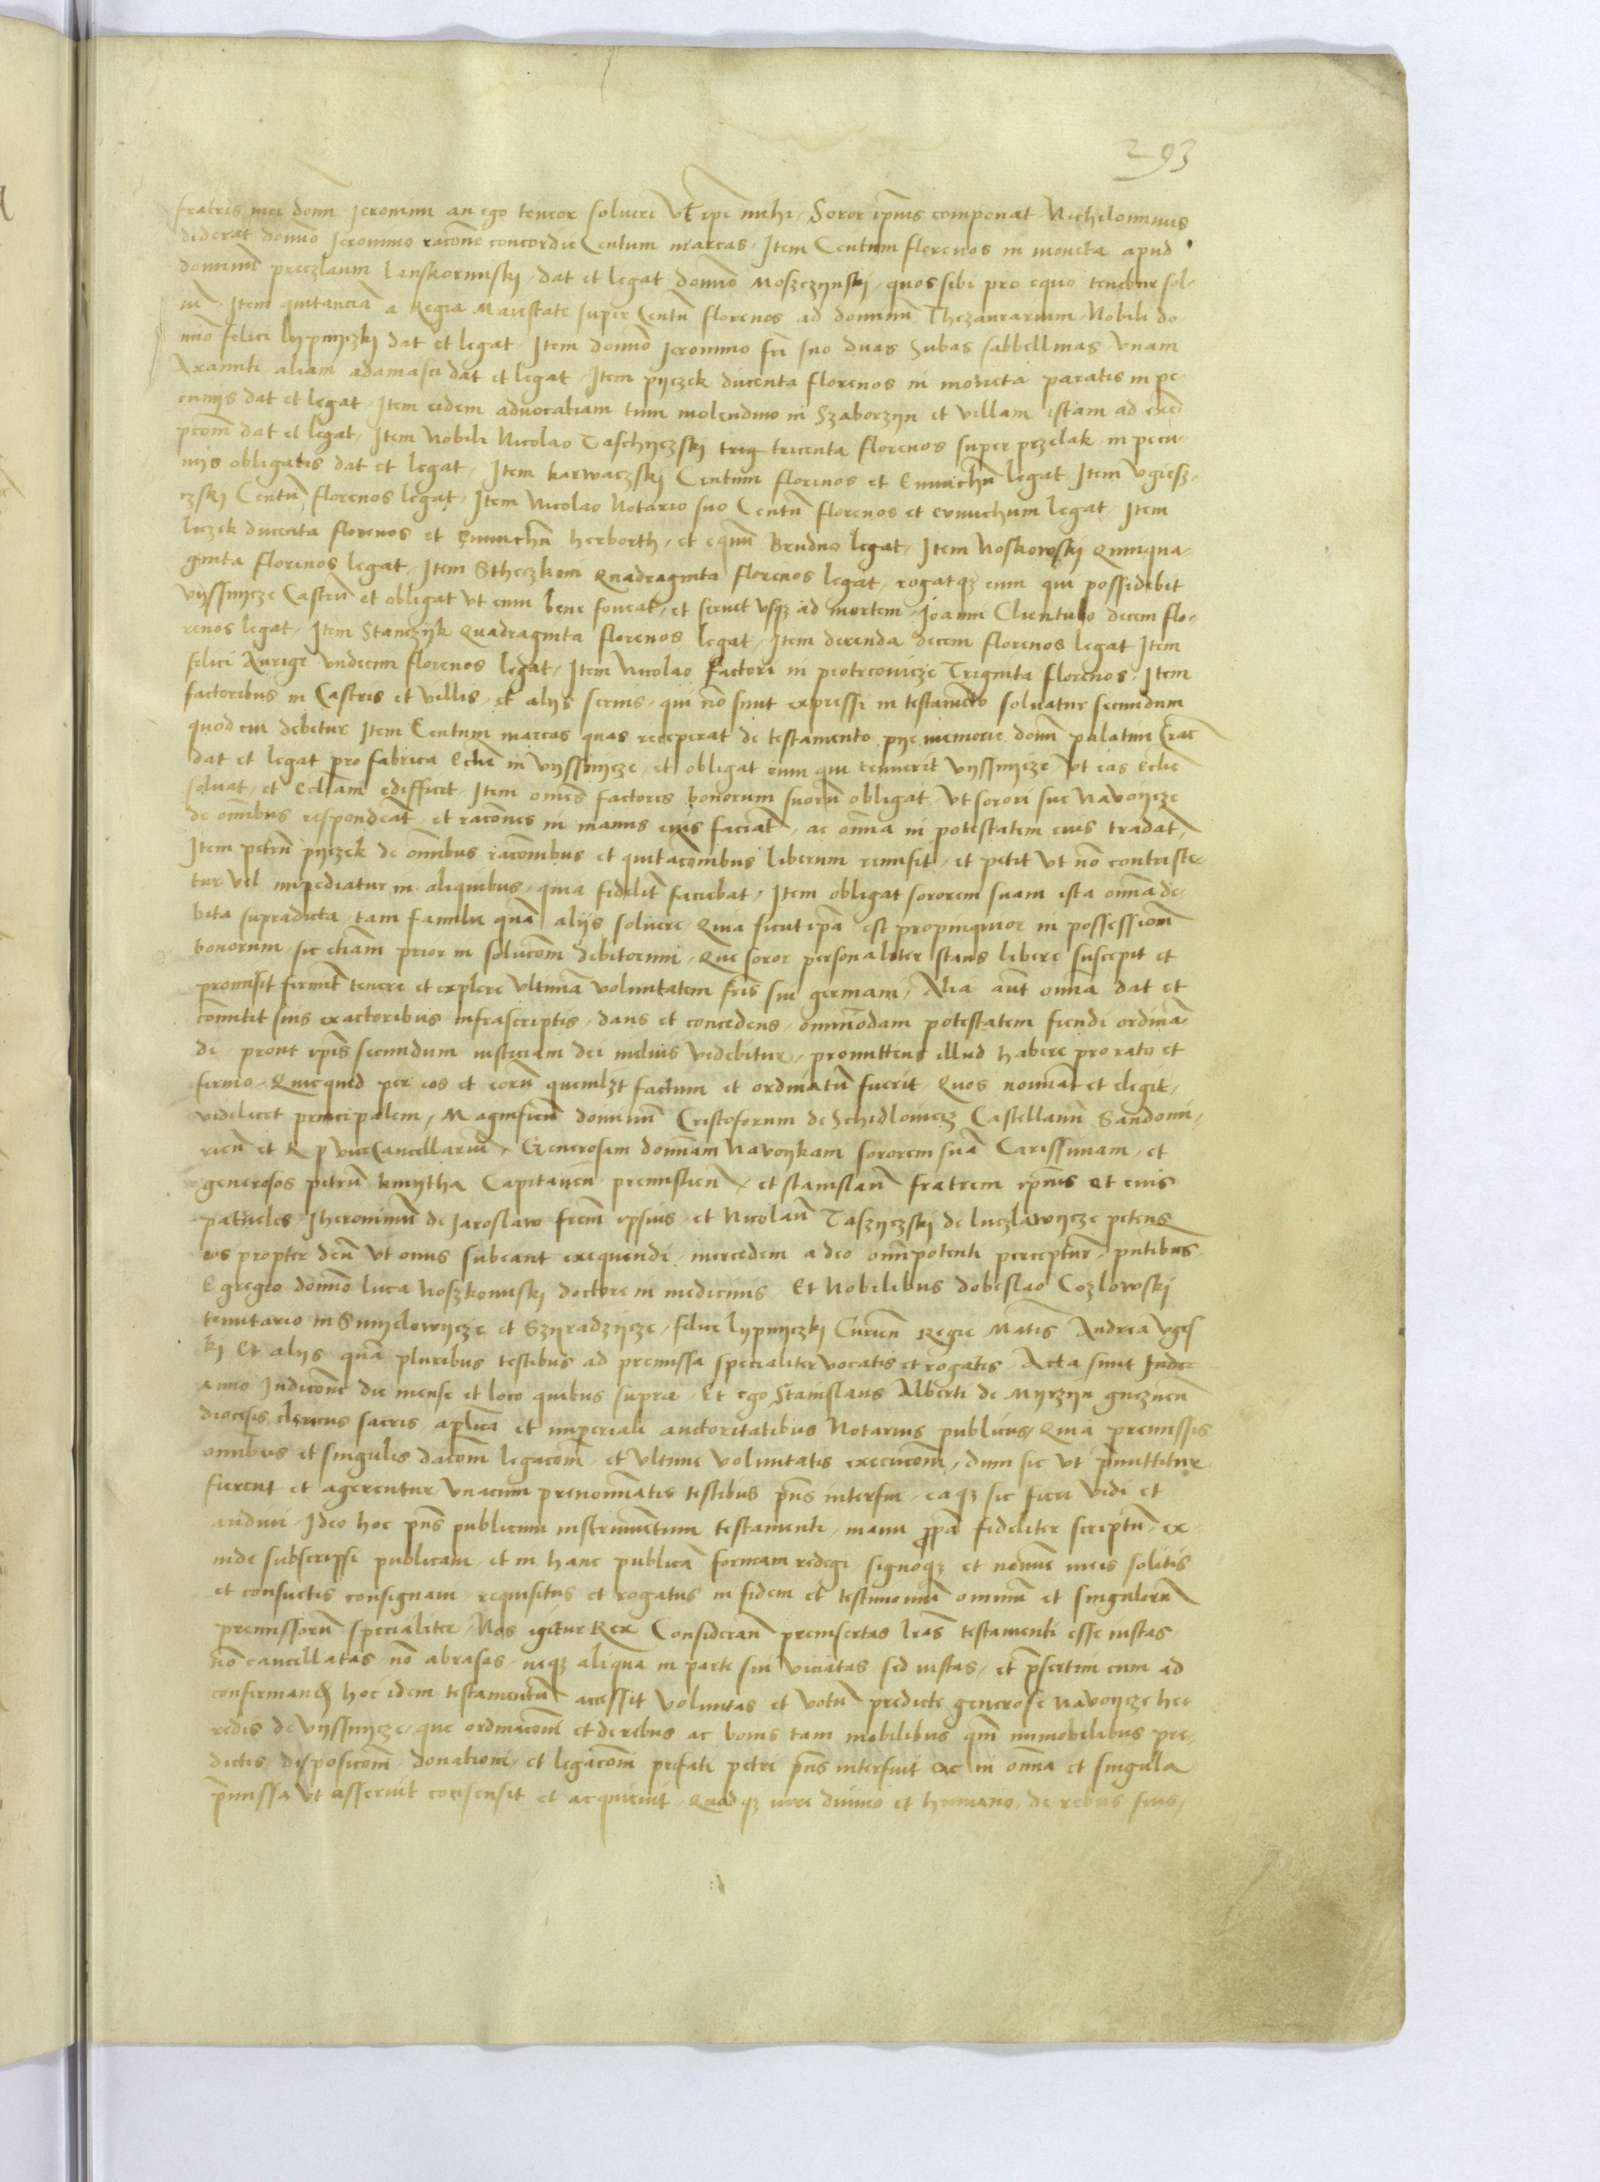 293
fratris mei domĩ Jeronimi an ego teneor solvere vł ipe mihi, Soror ipius componat Nichilominus
diderat domĩo Jeronimo racõne concordie Centum marcas, Item Centum florenos in moneta apud
dominũ preczlaum Lanskorunski, dat et legat domĩo Mosczynski, quos sibi pro equo tenebar sol-
vi, Item quitanciã a Regia Maiestate super Centũ florenos ad dominũ Thezaurarium Nobili do-
mĩo felici lypnyczki dat et legat, Item domĩo Jeronimo frĩ suo duas Subas sabbellinas, vnam
Axamiti aliam adamasci dat et legat, Item pyczek ducenta florenos in moneta paratis in pe-
cunijs dat et legat, Item eidem advocatiam cum molendino in Szaborzyn et villam istam ad exẽ-
pcõm dat et legat, Item Nobili Nicolao Taschyczski trig tricenta florenos super przelak in pecu-
nijs obligatis dat et legat, Item karwaczski Centum florenos et Eunuchũ legat, Item vgiesz-
czski Centũ florenos legat, Item Nicolao Notario suo Centũ florenos et evnuchum legat, Item
liczek ducenta florenos et Eunuchũ herborth, et equũ Brudno legat, Item Noskowski Quinqua-
ginta florenos legat, Item Stheczkoni Quadraginta florenos legat, rogatqz eum qui possidebit
vyssnycze Castrũ et obligat vt eum bene foveat, et servet vsqz ad mortem, Joanni Clientulo decem flo-
renos legat, Item Stanczyk Quadraginta florenos legat, Item derenda decem florenos legat Item
felici Aurige vndecim florenos legat, Item Nicolao factori in piotrcovicze Triginta florenos, Item
factoribus in Castris et villis, et alijs servis, qui nõ sunt expressi in testamẽto solvatur secundum
quod cui debetur Item Centum marcas quas receperat de testamento pye memorie domĩ palatini Crac
dat et legat pro fabrica Eclie in vyssnycze, et obligat eum qui tenuerit vyssnycze vt eas Eclie
solvat, et Ecliam edifficet, Item omẽs factores bonorum suorũ obligat, vt sorori sue Navoycze
de omĩbus respondeãt, et racões in manus eius faciãt, ac omĩa in potestatem eius tradãt,
Item petrũ pyczek de omĩbus racõnibus et quitacõnibus liberum remisit, et petit vt nõ contriste-
tur vel impediatur in aliquibus, quia fidelit faciebat, Item obligat sororem suam ista omĩa de-
bita supradicta tam familie quã alijs solvere, Quia sicut ipã est propinquior in possessionẽ
bonorum, sic etiam prior in solucõm debitorum, Que soror personaliter stans libere suscepit et
promisit firmit tenere et explere vltimã voluntatem frĩs sui germani, Alia aũt omĩa dat et
cõmitit suis exactoribus infrascriptis, dans et concedens, omnimodam potestatem fiendi ordinã-
di, prout ipĩs secundum iusticiam dei melius videbitur, promittens illud habere pro rato et
firmo, Quicquid per eos et eorũ quemlizt factum et ordinatũ fuerit, Quos nomĩat et elegit,
videlicet principalem, Magnificũ dominũ Cristoforum de Schidlowiecz Castellanũ Sandomi-
rieñ et R p viceCancellariũ, Generosam domĩnam Navoykam sororem suã Carissimam, et
generosos petrũ kmytha Capitaneũ premislieñ, et stanislaũ fratrem ipĩus et eius
patrueles, Jheronimũ de Jaroslaw frẽm ipsius, et Nicolaũ Taszyczski de luczlawycze petens
eos propter deũ vt onus subeant exequendi, mercedem a deo omĩpotenti perceptur, pñtibus
Egregio domĩo luca Noszkowski doctore in medicinis, Et Nobilibus dobeslao Cozlowski
tenutario in Smylowycze et Szyradzycze, felice lypnyczki Curieñ Regie Matis Andrea vgies
ki Et alijs quã pluribus testibus ad premissa specialiter vocatis et rogatis, Acta sunt Inde
anno Indicõne die mense et loco quibus supra, Et ego Stanislaus Alberti de Myrzyn gnezneñ
diocesis clericus sacris, apłica et imperiali auctoritatibus Notarius publicus, Quia premissis
omĩbus et singulis dacõni legacõni, et vltime voluntatis execucõni, dum sic vt pmittitur
fierent et agerentur vnacum prenomĩatis testibus pñs interfui, eaqz sic fieri vidi et
audivi, Ideo hoc pñs publicum instrumentum testamenti, manu ppa fideliter scriptũ, ex-
inde subscripsi publicavi, et in hanc publicã formam redegi, signoqz et nomie meis solitis
et consuetis consignavi, requisitus et rogatus in fidem et testimoniũ omniũ et singulorũ
premissorũ specialiter, Nos igitur Rex Considerañ preinsertas lrãs testamenti esse iustas
nõ cancellatas, nõ abrasas, neqz aliqua in parte sui viciatas sed iustas, et psertim cum ad
confirmandũ hoc idem testamentũ accessit voluntas et votũ predicte generose Navoycze her-
redis de vyssnycze, que ordinacõni et de rebus ac bonis tam mobilibus qm immobilibus pre-
dictis, disposicõni, donationi, et legacõni prefati petri pñs interfuit ac in omĩa et singula
pmissa vt asseruit consensit et acquievit, Quodqz iure divino et humano, de rebus suis,